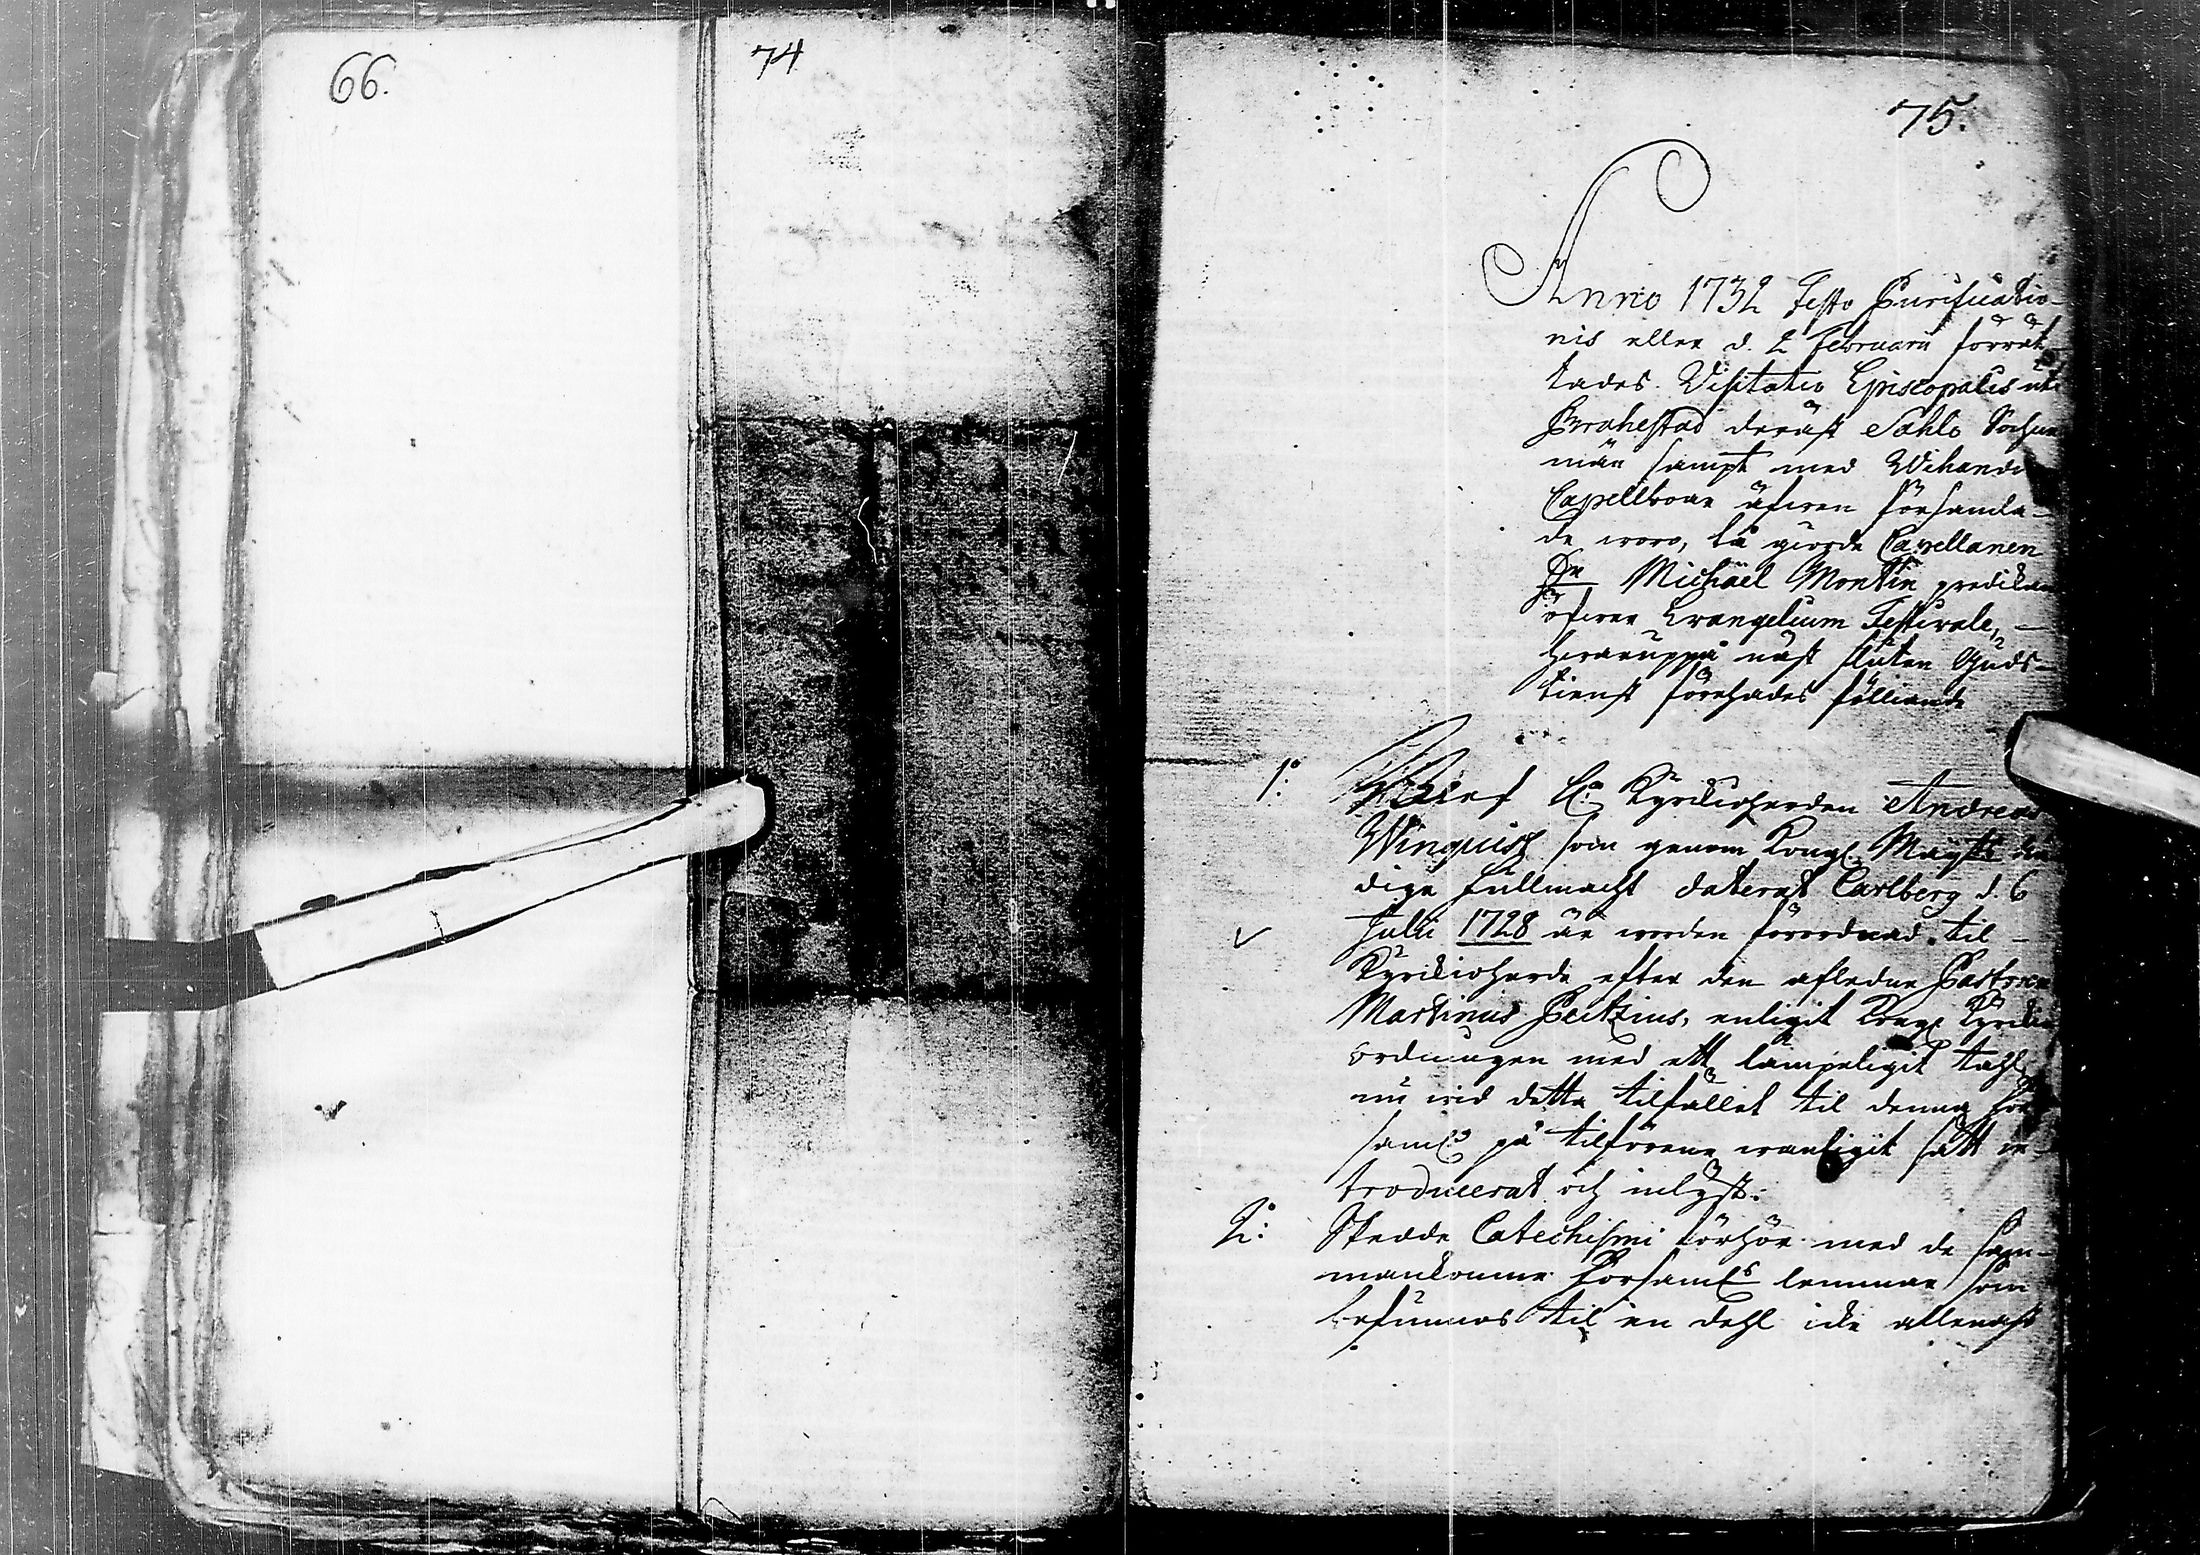 66.
74
75.
Anno 1732 Festo Purificatio-
nis eller d. 2 Februarii förrät-
tades Visitatio Episcopalis uti
Brahestad deräst Sahlo Sochne
män sampt med Wihandi
Capellboar äfwen församla-
de woro, tå giorde Capellanen
Dn Michäel Montin predikan
öfwer Evangelium Festivale,
hwaruppå näst sluten Guds-
tienst förehades fölliande
1:o Blef H:r Kyrkioherden Andreas
Winquist som genom Kongl. Mayts
dige fullmacht daterat Carlberg d. 6
Julii 1728 är worden förordnad til
Kyrkioherde efter den afledne Pastoren
Martinus Peitzius, enligit Kongl Kyrkio
ordningen med ett lämpeligit tahl
nu wid detta tilfället til denna För
saml:g på tilförene wanligit sätt in-
troducerat och inlyst.
2:o Skedde Catechismi förhör med de sam-
mankomne Forsaml:s lemmar som
befunnos til en dehl icke allenast